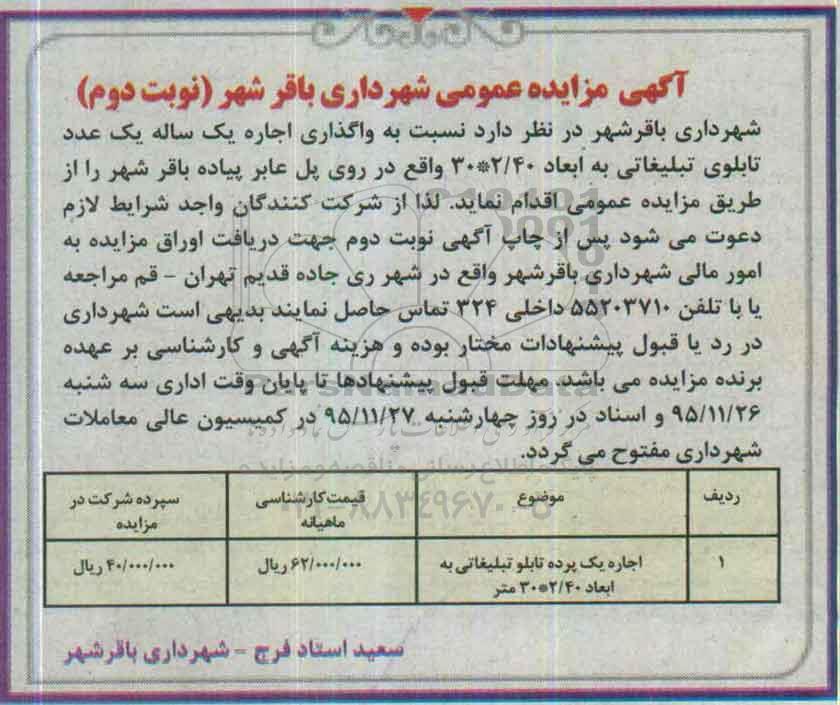 آگهی مزایده عمومی شهرداری باقر شهر (نوبت دوم)
شهرداری باقرشهر در نظر دارد نسبت به واگذاری اجاره یک ساله یک عدد
تابلوی تبلیغاتی به ابعاد ۲/۴۰*۳۰ واقع در روی پل عابر پیاده باقر شهر را از
طریق مزایده عمومی اقدام نماید. لذا از شرکت کنندگان واجد شرایط لازم
دعوت می شود پس از چاپ آگهی نوبت دوم جهت دریافت اوراق مزایده به
امور مالی شهرداری باقرشهر واقع در شهر ری جاده قدیم تهران - قم مراجعه
یا با تلفن ۵۵۲۰۳۷۱۰ داخلی ۳۲۴ تماس حاصل نمایند بدیهی است شهرداری
در رد یا قبول پیشنهادات مختار بوده و هزینه آگهی و کارشناسی بر عهده
برنده مزایده می باشد. مهلت قبول پیشنهادها تا پایان وقت اداری سه شنبه
۹۵/۱۱/۲۶ و اسناد در روز چهارشنبه ۹۵/۱۱/۲۷ در کمیسیون عالی معاملات
شهرداری مفتوح می گردد.
ردیف موضوع قیمت کارشناسی ماهیانه سپرده شرکت در مزایده
۱ اجاره یک پرده تابلو تبلیغاتی به ابعاد ۲/۴۰*۳۰ متر ۶۲/۰۰۰/۰۰۰ ریال ۴۰/۰۰۰/۰۰۰ ریال
سعید استاد فرج - شهرداری باقرشهر
ParsNamadData
۰۲۱-۸۸۳۴۹۶۷۰-۵